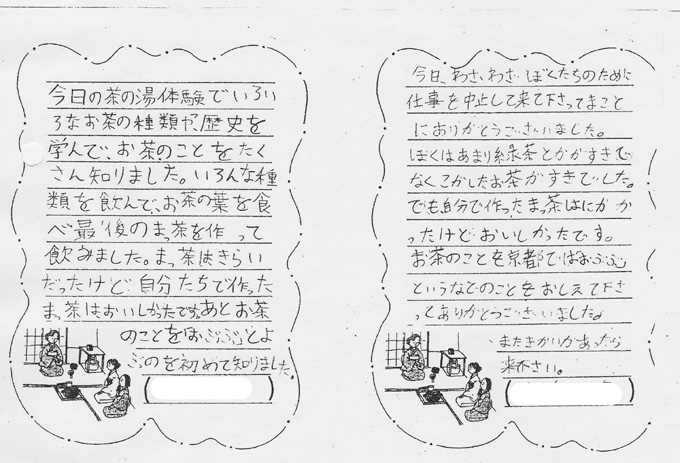 今日の茶の湯体験でいろい
ろなお茶の種類や歴史を
学んで、お茶のことをたく
さん知りました。いろんな種
類を飲んで、お茶の葉を食
べ最後のまっ茶を作って
飲みました。まっ茶はきらい
だったけど、自分たちで作った
まっ茶はおいしかったです。あとお茶
のことをおぶぶとよ
ぶのを初めて知りました。
今日、わざ、わざ、ぼくたちのために
仕事を中止して来て下さってまこと
にありがとうございました。
ぼくはあまり緑茶とかがすきで
なくこかしたお茶がすきでした。
でも自分で作ったまっ茶はにがか
ったけどおいしかったです。
お茶のことを京都ではおぶぶ
というなどのことをおしえて下さ
ってありがとうございました。
またきかいがあったら
来て下さい。